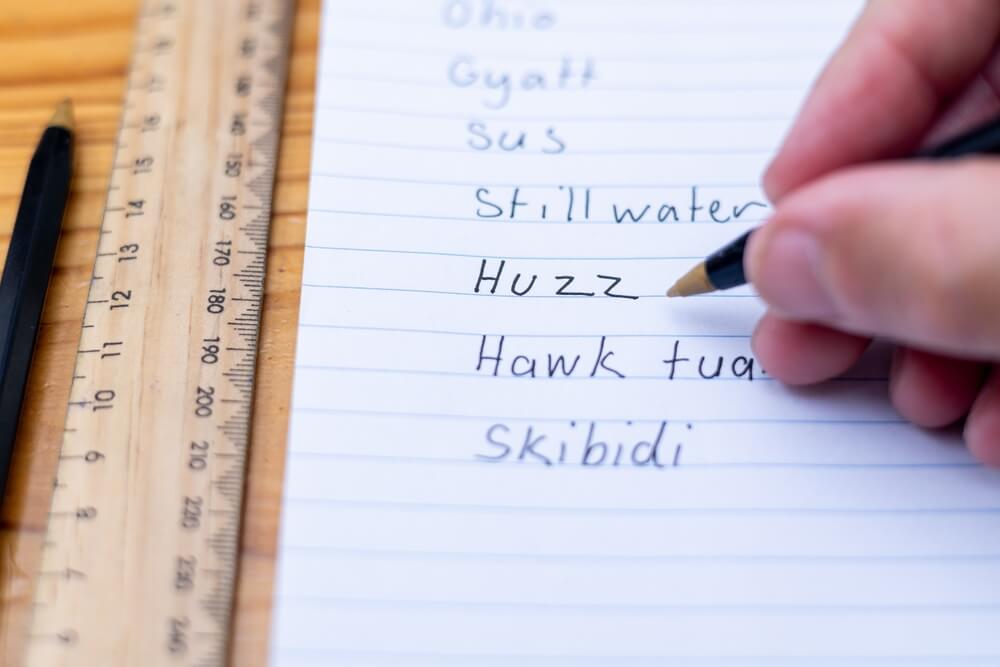 Ohio
Gyatt
Sus
Still water
Huzz
Hawk tua
Skibidi
18
17
16
15
14
13
12
11
10
9
8
7
6
140
150
160
170
180
190
200
210
220
230
240